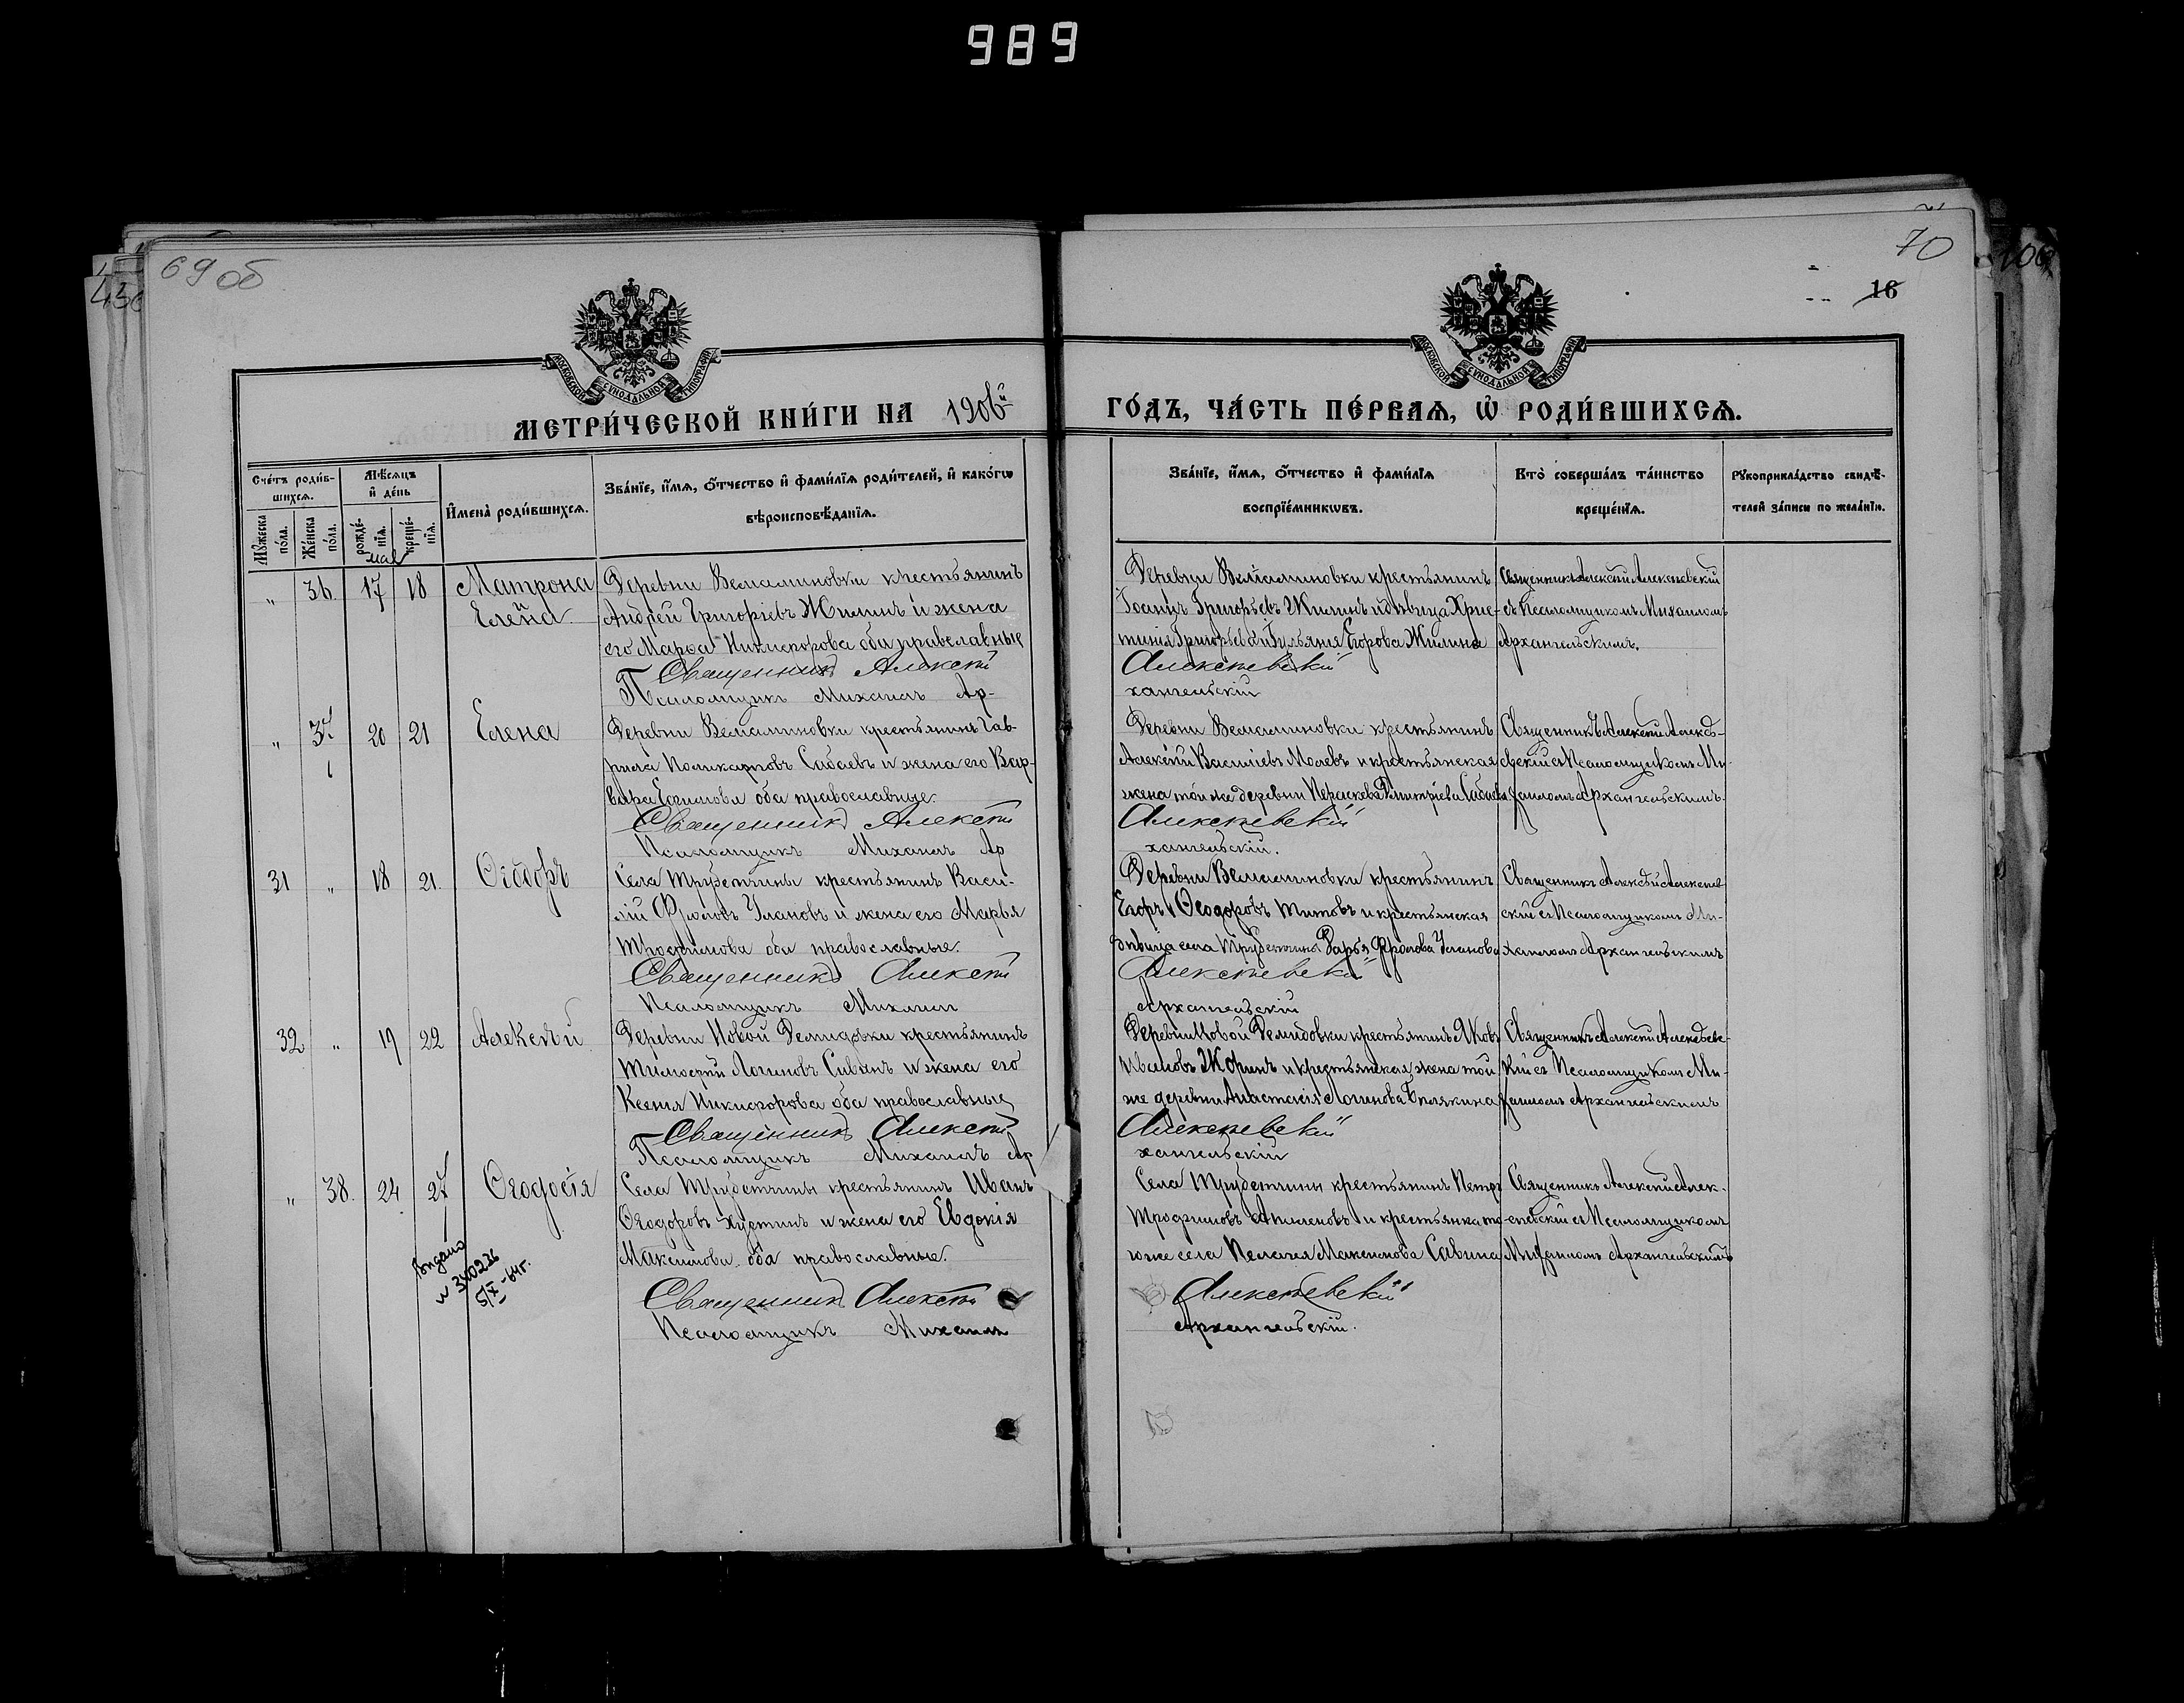 989
69 об
70
16
МОСКОВСКОЙ СѴНОДАЛЬНОЙ ТИПОГРАФІИ
МОСКОВСКОЙ СѴНОДАЛЬНОЙ ТИПОГРАФІИ
МЕТРИ́ЧЕСКОЙ КНИ́ГИ НА 1906й ГО́ДЪ, ЧА́СТЬ ПЕ́РВАѦ, Ѡ҆ РОДИ́ВШИХСѦ.
Сче́тъ роди́в-
шихсѧ.
Мꙋ́жеска
по́ла.
Же́нска
по́ла.
Мѣ́сѧцъ
и҆ де́нь
рожде́-
нїѧ.
креще́-
нїѧ.
И҆мена̀ роди́вшихсѧ.
Зва́нїе, и҆́мѧ, ѻ҆́тчество и҆ фами́лїѧ роди́телей, и҆ како́гѡ
вѣроисповѣ́данїѧ.
Зва́нїе, и҆́мѧ, ѻ҆́тчество и҆ фами́лїѧ
воспрїе́мникѡвъ.
Кто̀ соверша́лъ та́инство
креще́нїѧ.
Рꙋкоприкла́дство свидѣ́-
телей за́писи по жела́нїю.
мая
„ 36. 17 18 Матрона
Елена
Деревни Вельяминовки крестьянинъ
Андрей Григорiевъ Жилинъ и жена
его Марѳа Никифорова оба православные
Священникъ Алексѣй
Псаломщикъ Михаилъ Ар-
Деревни Вельяминовки крестьянинъ
Іоаннъ Григорьевъ Жилинъ и дѣвица Хрис-
тинія Григорьева и Ульянія Егорова Жилина
Алексѣевскій
хангельскій
Священникъ Алексѣй Алексѣевскій
съ Псаломщикомъ Михаиломъ
Архангельскимъ.
„ 37 20 21 Елена
Деревни Вельяминовки крестьянинъ Гав-
рила Поликарповъ Сабаевъ и жена его Вар-
вара Ефимова оба православные.
Священникъ Алексѣй
Псаломщикъ Михаилъ Ар
Деревни Вельяминовки крестьянинъ
Алексѣй Василіевъ и крестьянская
жена той же деревни Параскева Дмитріева
Алексѣевскій
хангельскій.
Священникъ Алексѣй Алексѣ-
евскій съ Псаломщикомъ Ми-
хаиломъ Архангельскимъ.
31 „ 18 21 Ѳеодоръ
Села Трубетчины крестьянинъ Васи-
лій Фроловъ Улановъ и жена его Марья
Трофимова оба православные.
Священникъ Алексѣй
Псаломщикъ Михаилъ
Деревни Вельяминовки крестьянинъ
Егоръ Ѳеодоровъ Титовъ и крестьянская
дѣвица села Трубетчина Дарья Фролова Уланова
Алексѣевскій
Архангельскій
Священникъ Алексѣй Алексѣев-
скій съ Псаломщикомъ Ми-
хаиломъ Архангельскимъ
32 „ 19 22 Алексѣй
Деревни Новой Демидовки крестьянинъ
Тимоѳей Логиновъ и жена его
Ксенія Никифорова оба православные
Священникъ Алексѣй
Псаломщикъ Михаилъ Ар
Деревни Новой Демидовки крестьянинъ Яковъ
Ивановъ и крестьянская жена той
же деревни Анастасія Логинова
Алексѣевскій
хангельскій
Священникъ Алексѣй Алексѣевс-
кій съ Псаломщикомъ Ми-
хаиломъ Архангельскимъ
„ 38. 24 27 Ѳеодосія
Села Трубетчины крестьянинъ Иванъ
Ѳеодоровъ и жена его Евдокія
Максимова оба православные.
Священникъ Алексѣй
Псаломщикъ Михаилъ
Села Трубетчины крестьянинъ Петръ
Трофимовъ и крестьянка то-
го же села Пелагея Максимова Савина
Алексѣевскій
Архангельскій.
Священникъ Алексѣй Алек-
сѣевскій съ Псаломщикомъ
Михаиломъ Архангельскимъ
Выдано
5/X-64г.